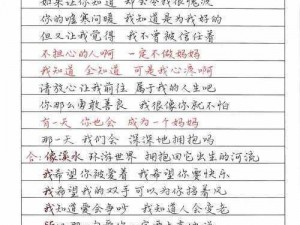 如果让你知道 却会令我很愧疚
你的嘘寒问暖 我知道是为我好的
但又让我觉得 我不曾被信任着
不担心的人啊 一定不做妈妈
我知道 全知道 可是我心疼啊
请放心让我前往 属于我的人生吧
你那么勇敢善良 我很像你就不怕
有一天 你也会 成为一个妈妈
那一天 我们会 深深地拥抱吗
合：像溪水 环游世界 拥抱回它出生的河流
我希望你被爱着 我希望你要快乐
我希望我的双手 可以为你挡着风
我知道爱会争吵 我知道人会变老